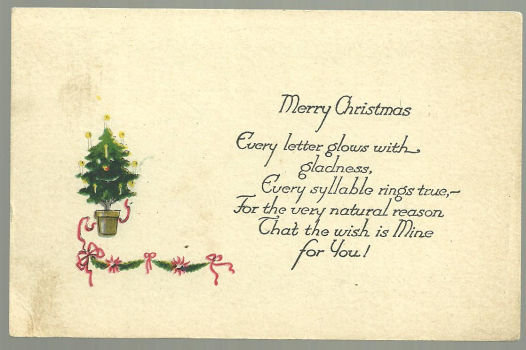 Merry Christmas
Every letter glows with
gladness,
Every syllable rings true,-
For the very natural reason
That the wish is Mine
for You!